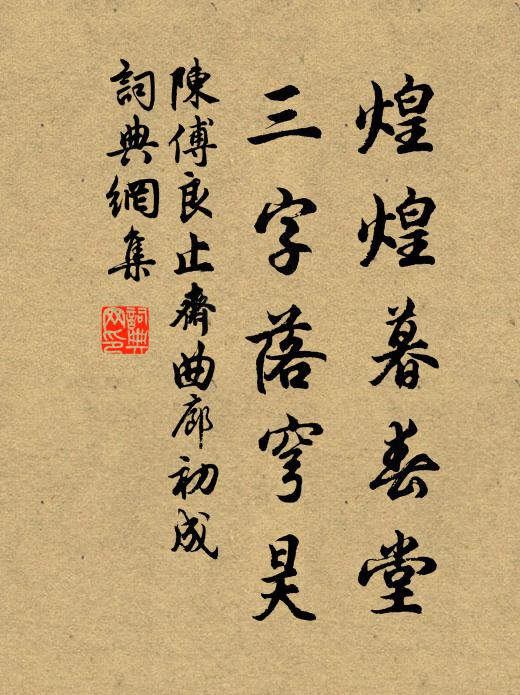 煌煌暮春堂
三字落穹昊
陳傅良止齋曲廊初成
詞典網集
詞典网印